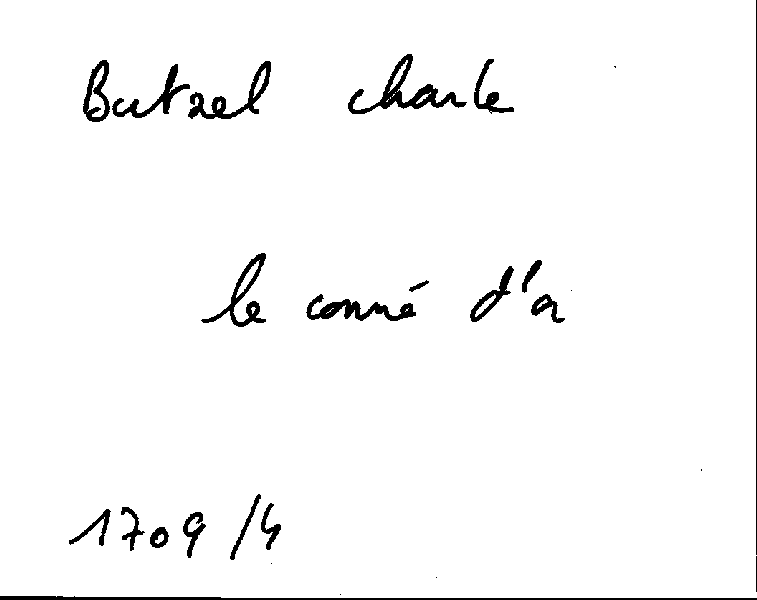 Butzel charle
le conné d'a
1709/4